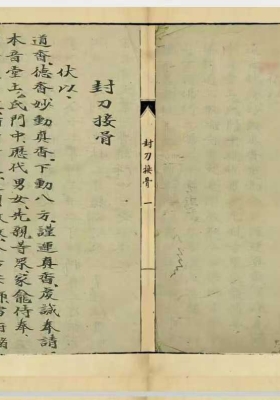 封刀接骨
伏以、
道香、德香妙動真香、下動八方、謹運真香、虔誠奉請
本音堂上△氏門中、歷代男女先親等眾家龕侍奉、
封刀接骨 一